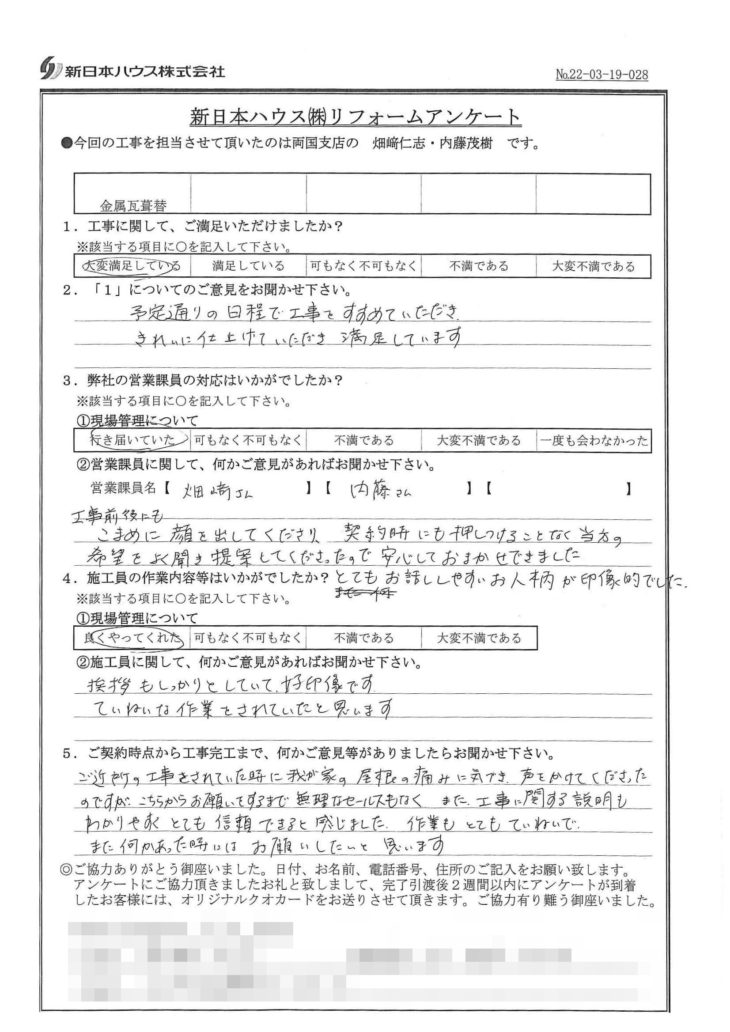 新日本ハウス株式会社
№22-03-19-028
新日本ハウス㈱リフォームアンケート
●今回の工事を担当させて頂いたのは両国支店の 畑﨑仁志・内藤茂樹 です。
金属瓦葺替
1．工事に関して、ご満足いただけましたか？
※該当する項目に○を記入して下さい。
大変満足している 満足している 可もなく不可もなく 不満である 大変不満である
2．「1」についてのご意見をお聞かせ下さい。
予定通りの日程で工事をすすめていただき、
きれいに仕上げていただき満足しています
3．弊社の営業課員の対応はいかがでしたか？
※該当する項目に○を記入して下さい。
①現場管理について
行き届いていた 可もなく不可もなく 不満である 大変不満である 一度も会わなかった
②営業課員に関して、何かご意見があればお聞かせ下さい。
営業課員名【 畑﨑さん 】【 内藤さん 】【 】
工事前後にも
こまめに顔を出してくださり、契約時にも押しつけることなく当方の
希望をよく聞き提案してくださったので安心しておまかせできました
4．施工員の作業内容等はいかがでしたか？ とてもお話ししやすいお人柄が印像的でした。
※該当する項目に○を記入して下さい。
①現場管理について
良くやってくれた 可もなく不可もなく 不満である 大変不満である
②施工員に関して、何かご意見があればお聞かせ下さい。
挨拶もしっかりとしていて、好印像です
ていねいな作業をされていたと思います
5．ご契約時点から工事完工まで、何かご意見等がありましたらお聞かせ下さい。
ご近所の工事をされていた時に我が家の屋根の痛みに気づき、声をかけてくださった
のですが、こちらからお願いをするまで無理なセールスもなく また、工事に関する説明も
わかりやすくとても信頼できると感じました。作業もとてもていねいで、
また何かあった時にはお願いしたいと思います
◎ご協力ありがとう御座いました。日付、お名前、電話番号、住所のご記入をお願い致します。
アンケートにご協力頂きましたお礼と致しまして、完了引渡後２週間以内にアンケートが到着
したお客様には、オリジナルクオカードをお送りさせて頂きます。ご協力有り難う御座いました。